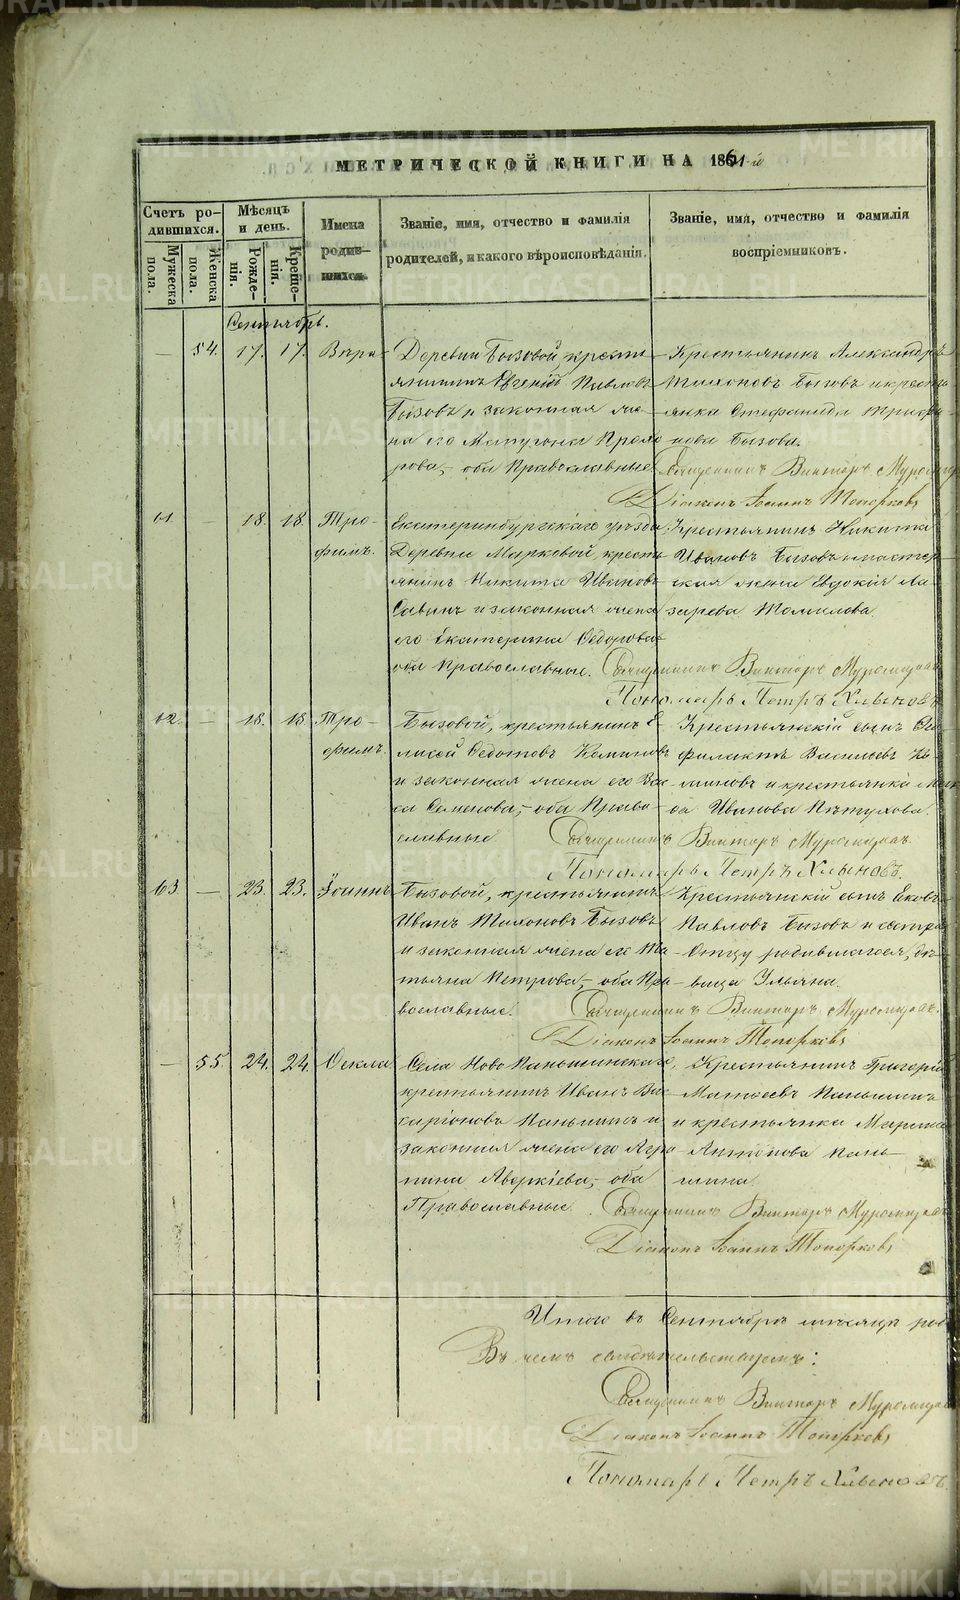 МЕТРИЧЕСКОЙ КНИГИ НА 1861-й
Счетъ ро-
дившихся.
Мужеска
пола.
Женска
пола.
Мѣсяцъ
и день.
Рожде-
нія.
Креще-
нія.
Имена
родив-
шихся.
Званіе, имя, отчество и фамилія
родителей, и какого вѣроисповѣданія.
Званіе, имя, отчество и фамилія
воспріемниковъ.
Сентябрь.
— 54. 17. 17. Вѣра
Деревни Бызовой, кресть-
янинъ Евгеній Павловъ
Бызовъ и законная же-
на его Прохо-
рова, оба Православные
Крестьянинъ Александръ
Тихоновъ Бызовъ и кресть-
янка Стефанида Трифо-
нова Бызова.
Священникъ Викторъ
Діаконъ Іоаннъ Топорковъ
61 — 18. 18. Тро-
фимъ.
Екатеринбургскаго уѣзда
Деревни Марковой, кресть-
янинъ Никита Ивановъ
Савинъ и законная жена
его Екатерина Ѳедорова
оба Православные.
Крестьянинъ Никита
Ивановъ Бызовъ и мастер-
ская жена Евдокія Ла-
зарева Томилова
Священникъ Викторъ
Пономарь Петръ Хлыновъ
62. — 18. 18. Тро-
фимъ
Бызовой, крестьянинъ Е
лисей Ѳедотовъ Коминовъ
и законная жена его Ва
са Семенова, оба Право-
славные
Крестьянскій сынъ Ѳео
филактъ Васильевъ Ко
миновъ и крестьянка
Иванова Пѣтухова.
Священникъ Викторъ
Пономарь Петръ Хлыновъ.
63 — 23. 23. Іоаннъ
Бызовой, крестьянинъ
Иванъ Тихоновъ Бызовъ
и законная жена его Та
тьяна Петрова, оба Пра
вославные.
Крестьянскій сынъ Яковъ
Павловъ Бызовъ и сестра
Отцу родившагося, дѣ-
вица Ульяна.
Священникъ Викторъ
Діаконъ Іоаннъ Топорковъ
— 55. 24. 24. Ѳекла
Села Ново Паньшинскаго,
крестьянинъ Иванъ Вис
саріоновъ Паньшинъ и
законная жена его Агри
пина Аверкіева, оба
Православные
Крестьянинъ Григорій
Матвеевъ Паньшинъ
и крестьянка Марина
Антонова Пань-
шина.
Священникъ Викторъ
Діаконъ Іоаннъ Топорковъ
Итого въ Сентябрѣ мѣсяцѣ род
Въ чемъ свидѣтельствуемъ:
Священникъ Викторъ
Діаконъ Іоаннъ Топорковъ
Пономарь Петръ Хлыновъ
METRIKI.GASO-URAL.RU